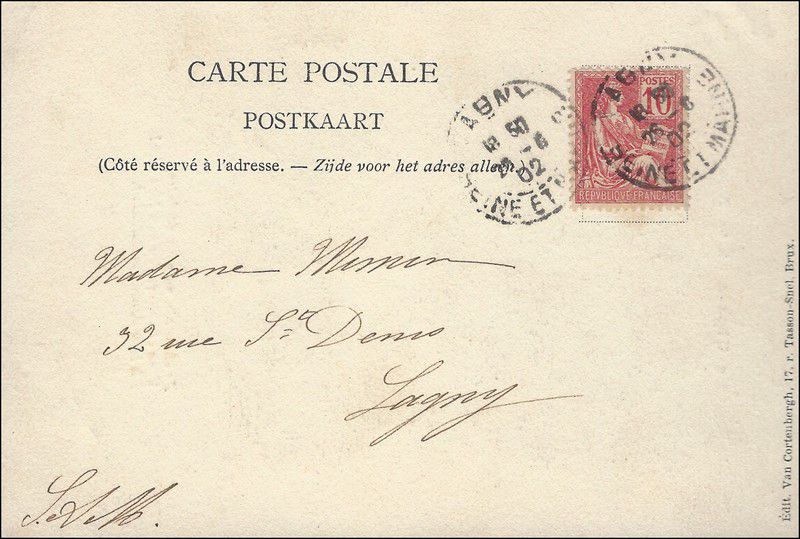 CARTE POSTALE
POSTKAART
(Côté réservé à l'adresse. — Zijde voor het adres alleen.)
POSTES
10
RÉPUBLIQUE FRANÇAISE
LAGNY
SEINE ET MARNE
Madame
32 rue St Denis
Lagny
S. & M.
Edit. Van Cortenbergh, 17, r. Tasson-Snel, Brux.